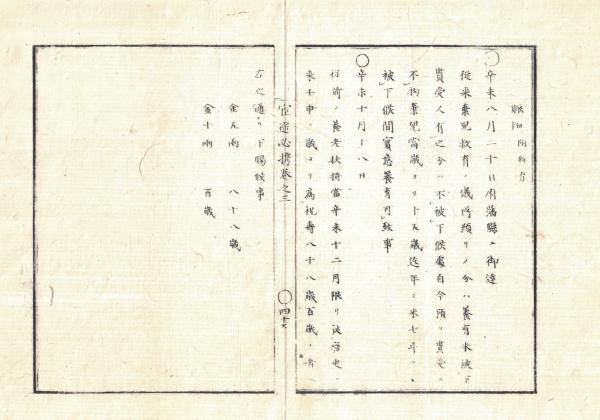 賑恤 附救育
○辛未八月二十日府藩縣ヱ御達
従来棄児救育ノ儀所預リノ分ハ養育米被下
貰受人有之分ハ不被下候處自今預リ貰受ニ
不拘棄児當歳ヨリ十五歳迄年々米七斗ツヽ
被下候間實意養育可致事
○辛未十月十八日
従前ノ養老扶持當辛未十二月限リ被廃更ニ
来壬申ノ歳ヨリ為祝寿八十八歳百歳ノ者ヘ
官途必携巻之三
○四十六
左之通リ下賜候事
金五両 八十八歳
金十両 百歳